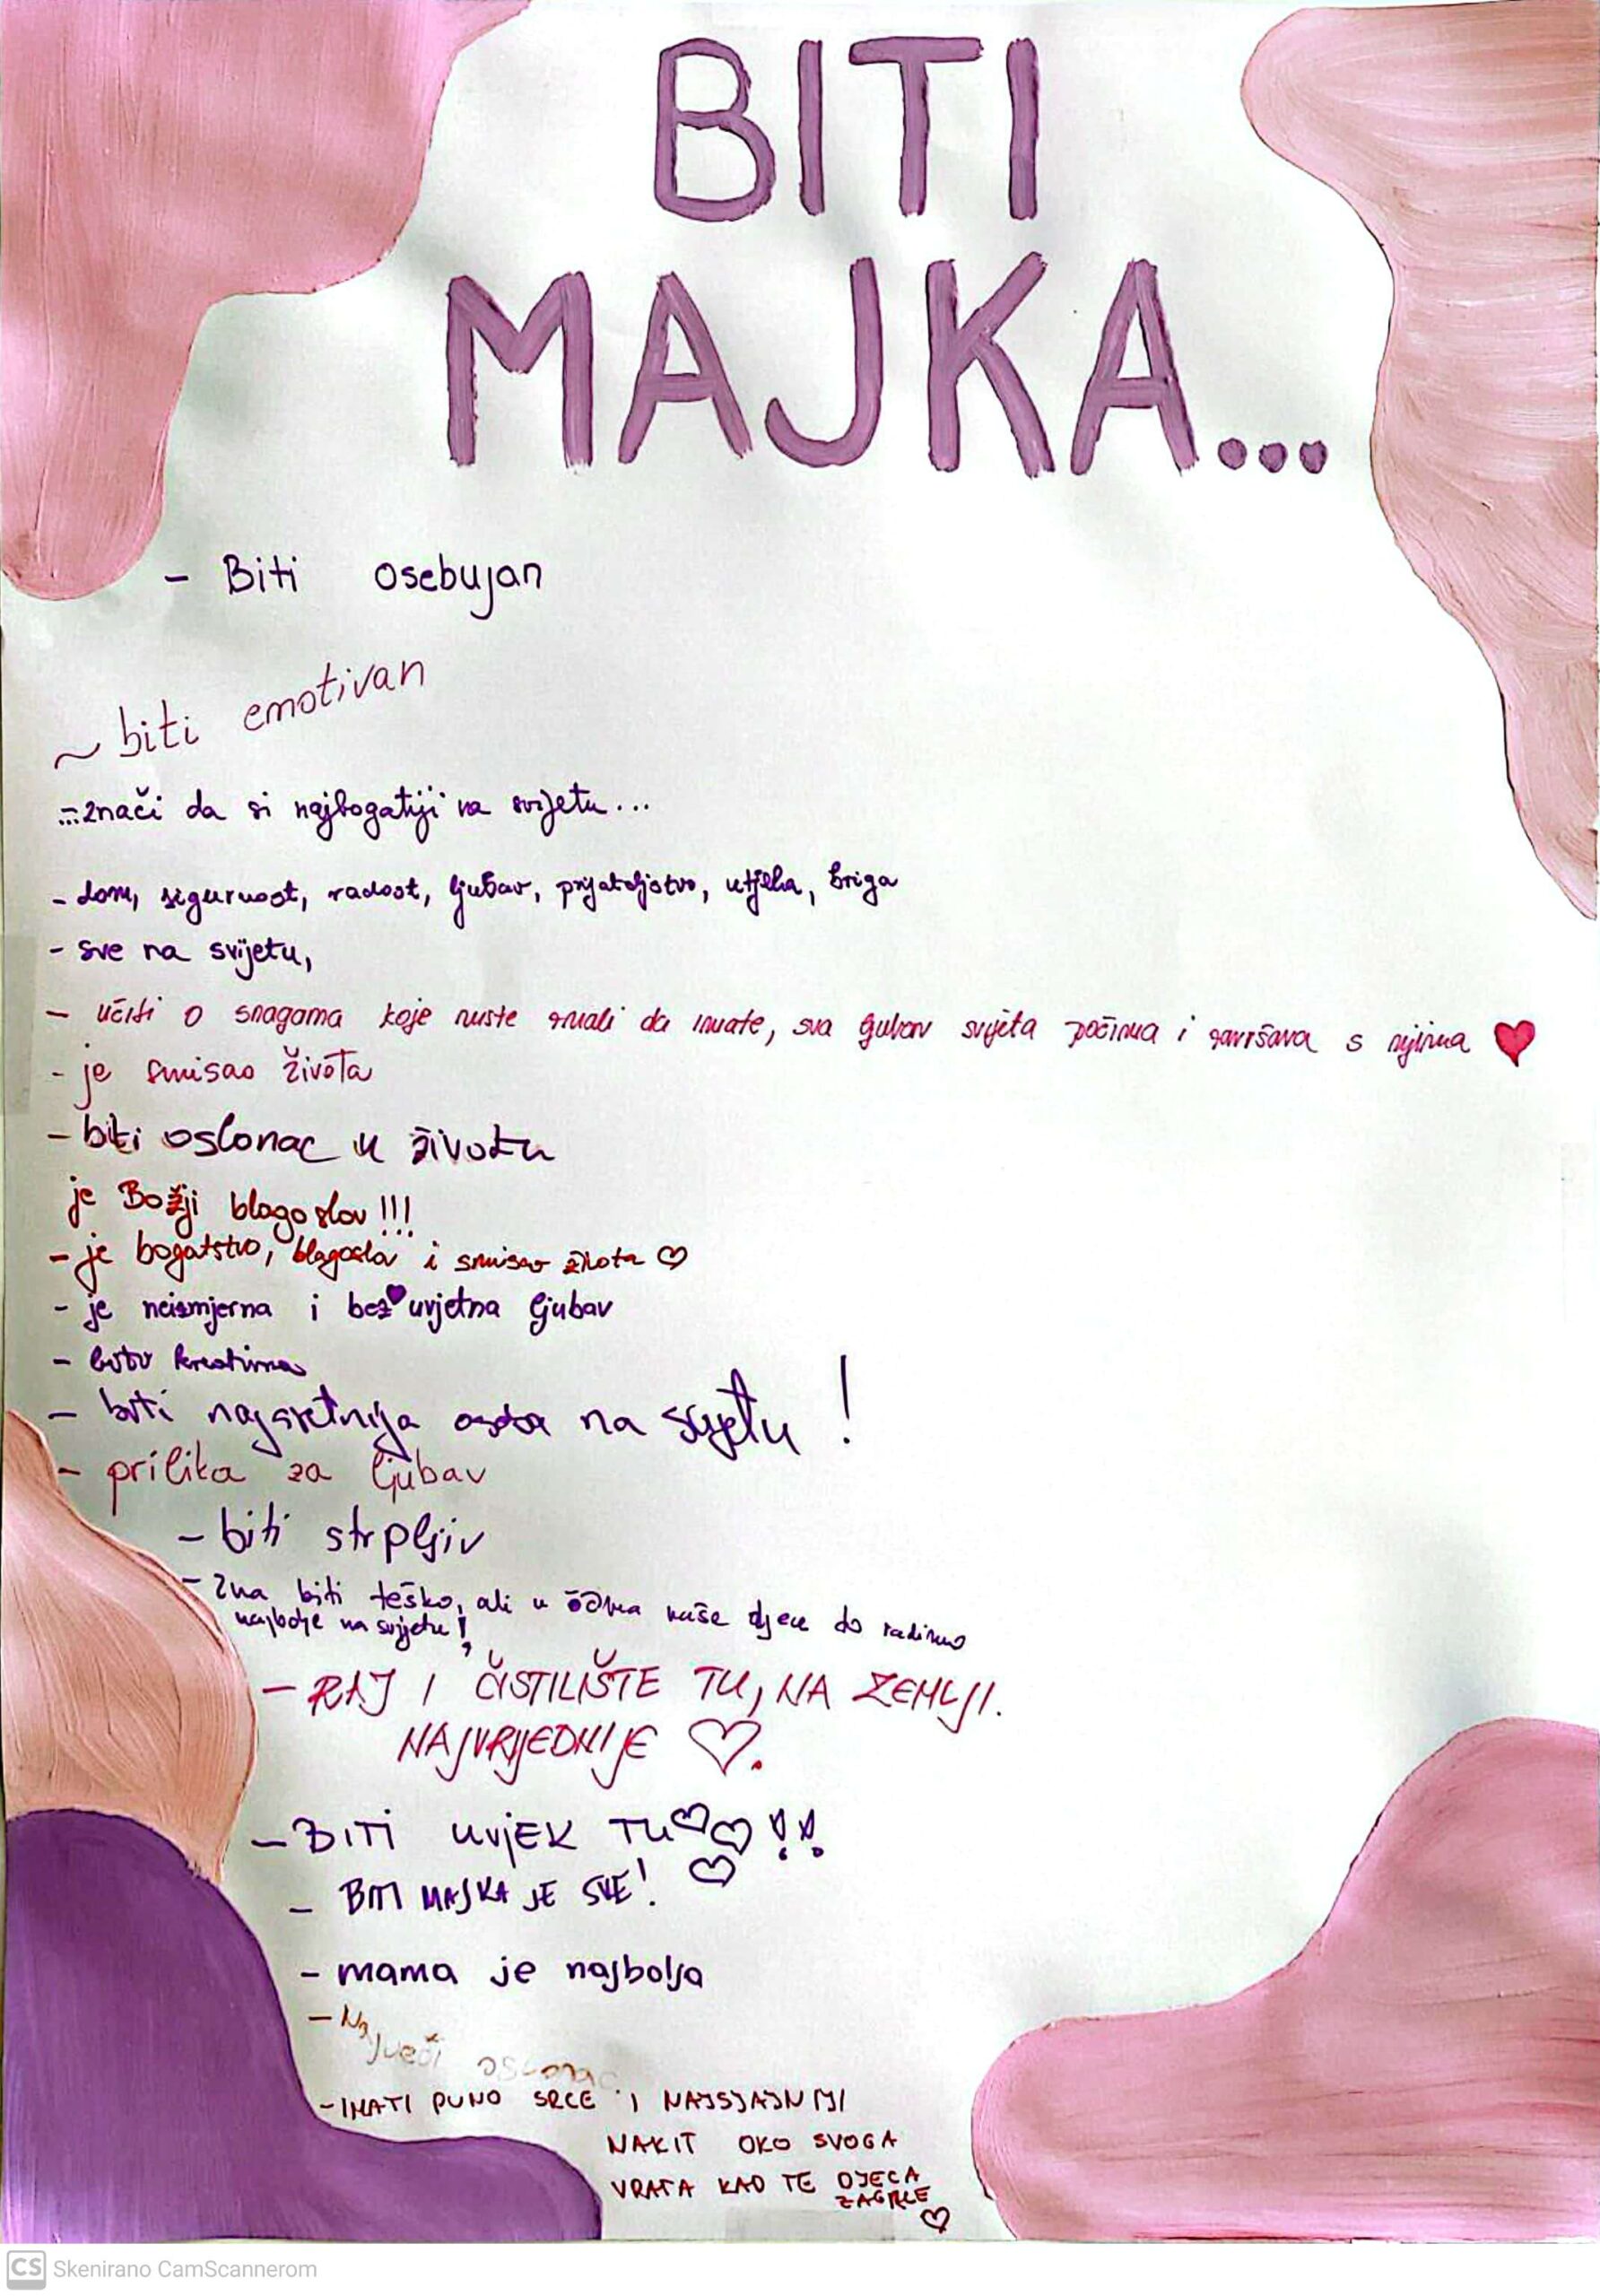 BITI
MAJKA...
- Biti osebujan
~ biti emotivan
...znači da si najbogatiji na svijetu...
- dom, sigurnost, radost, ljubav, prijateljstvo, utjeha, briga
- sve na svijetu,
- učiti o snagama koje niste znali da imate, sva ljubav svijeta počinja i završava s njima ♥
- je smisao života
- biti oslonac u životu
je Božji blagoslov!!!
- je bogatstvo, blagoslov i smisao života ♡
- je neizmjerna i bez♥uvjetna ljubav
- biti kreativna
- biti najsretnija osoba na svijetu!
- prilika za ljubav
- biti strpljiv
- Zna biti teško, ali u očima naše djece to radimo
najbolje na svijetu!
- RAJ I ČISTILIŠTE TU, NA ZEMLJI.
NAJVRIJEDNIJE ♡.
- BITI UVJEK TU ♡♡!!
- BITI MAJKA JE SVE! ♡
- mama je najbolja
- Najveći oslonac
- IMATI PUNO SRCE I NAJSJAJNIJI
NAKIT OKO SVOGA
VRATA KAD TE DJECA
ZAGRLE
♡
CS Skenirano CamScannerom